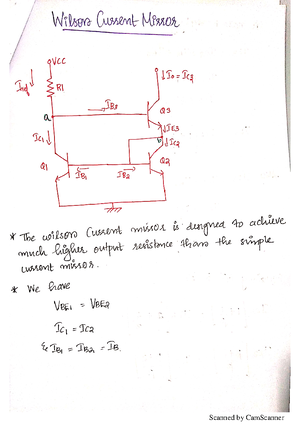 Wilson Current Mirror
VCC
Iref
R1
Io = IC3
IB3
Q3
a
IE3
b
IC1
IC2
Q1
IB1
IB2
Q2
* The wilson Current mirror is designed to achieve
much higher output resistance than the simple
current mirror.
* We have
VBE1 = VBE2
IC1 = IC2
& IB1 = IB2 = IB
Scanned by CamScanner